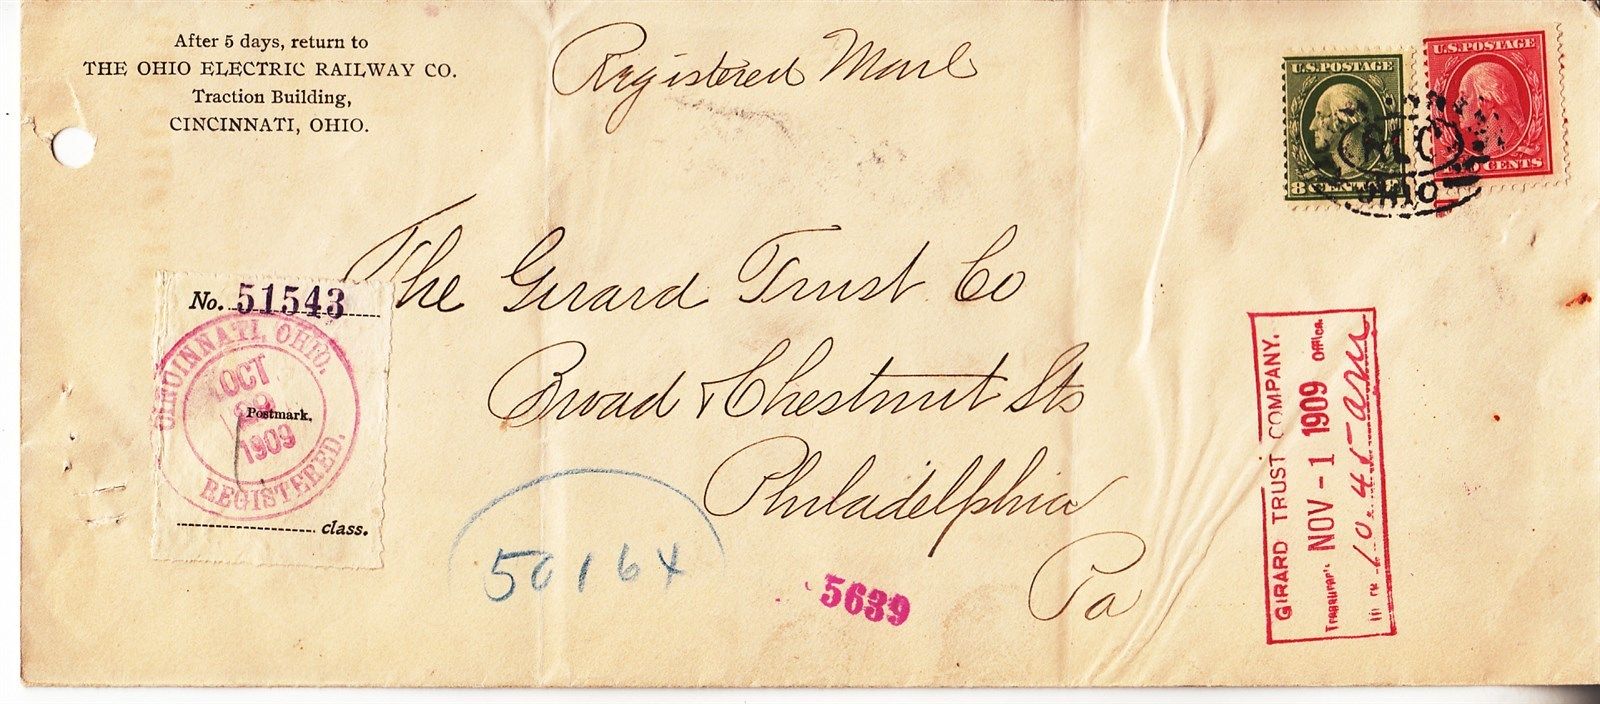 After 5 days, return to
THE OHIO ELECTRIC RAILWAY CO.
Traction Building,
CINCINNATI, OHIO.
Registered Mail
U.S. POSTAGE
8 CENTS 8
U.S. POSTAGE
CENTS
OHIO
The Girard Trust Co
Broad & Chestnut Sts
Philadelphia
Pa
No. 51543
CINCINNATI, OHIO.
OCT
29
1909
REGISTERED.
Postmark.
class.
50164
5639
GIRARD TRUST COMPANY.
Treasurer's NOV - 1 1909 Office.
10.45 am